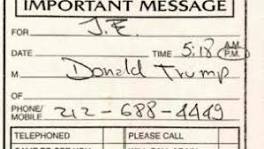 IMPORTANT MESSAGE
FOR J.E.
DATE TIME 5:18 A.M. P.M.
M Donald Trump
OF
PHONE/ MOBILE 212-688-4449
TELEPHONED PLEASE CALL